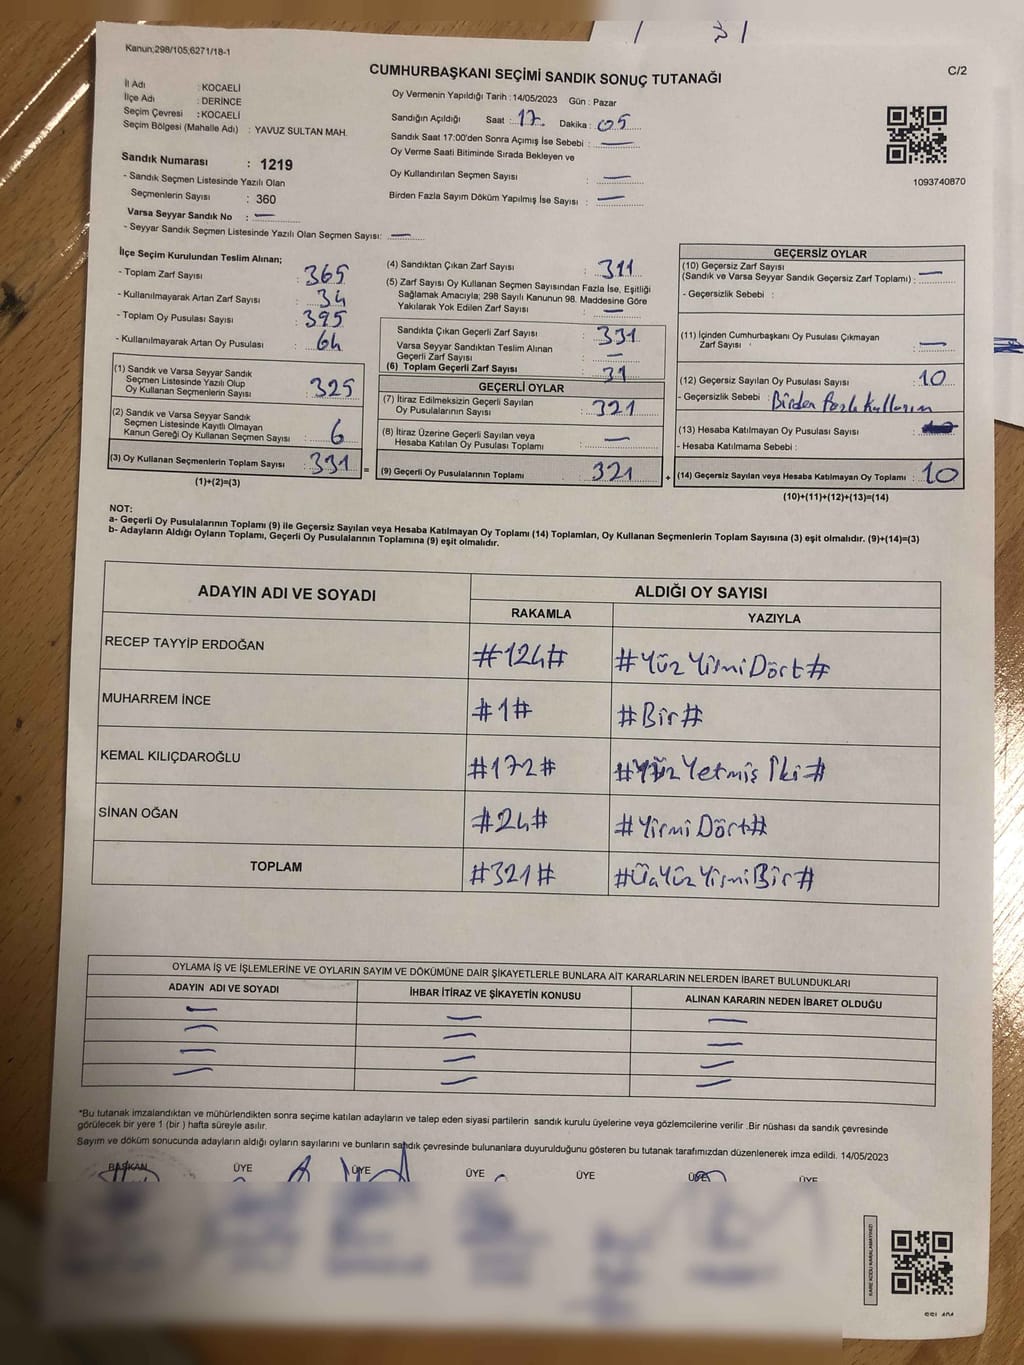 Kanun;298/105;6271/18-1
CUMHURBAŞKANI SEÇİMİ SANDIK SONUÇ TUTANAĞI
C/2
İl Adı : KOCAELİ
İlçe Adı : DERİNCE
Seçim Çevresi : KOCAELİ
Seçim Bölgesi (Mahalle Adı) : YAVUZ SULTAN MAH.
Sandık Numarası : 1219
- Sandık Seçmen Listesinde Yazılı Olan
Seçmenlerin Sayısı : 360
Varsa Seyyar Sandık No : —
- Seyyar Sandık Seçmen Listesinde Yazılı Olan Seçmen Sayısı: —
Oy Vermenin Yapıldığı Tarih : 14/05/2023 Gün : Pazar
Sandığın Açıldığı Saat : 17 Dakika : 05
Sandık Saat 17:00'den Sonra Açımış İse Sebebi : —
Oy Verme Saati Bitiminde Sırada Bekleyen ve
Oy Kullandırılan Seçmen Sayısı : —
Birden Fazla Sayım Döküm Yapılmış İse Sayısı : —
1093740870
İlçe Seçim Kurulundan Teslim Alınan;
- Toplam Zarf Sayısı : 365
- Kullanılmayarak Artan Zarf Sayısı : 34
- Toplam Oy Pusulası Sayısı : 395
- Kullanılmayarak Artan Oy Pusulası : 64
(1) Sandık ve Varsa Seyyar Sandık
Seçmen Listesinde Yazılı Olup
Oy Kullanan Seçmenlerin Sayısı : 325
(2) Sandık ve Varsa Seyyar Sandık
Seçmen Listesinde Kayıtlı Olmayan
Kanun Gereği Oy Kullanan Seçmen Sayısı : 6
(3) Oy Kullanan Seçmenlerin Toplam Sayısı : 331 =
(1)+(2)=(3)
(4) Sandıktan Çıkan Zarf Sayısı : 311
(5) Zarf Sayısı Oy Kullanan Seçmen Sayısından Fazla İse, Eşitliği
Sağlamak Amacıyla; 298 Sayılı Kanunun 98. Maddesine Göre
Yakılarak Yok Edilen Zarf Sayısı : —
Sandıkta Çıkan Geçerli Zarf Sayısı : 331
Varsa Seyyar Sandıktan Teslim Alınan
Geçerli Zarf Sayısı : —
(6) Toplam Geçerli Zarf Sayısı : 31
GEÇERLİ OYLAR
(7) İtiraz Edilmeksizin Geçerli Sayılan
Oy Pusulalarının Sayısı : 321
(8) İtiraz Üzerine Geçerli Sayılan veya
Hesaba Katılan Oy Pusulası Toplamı : —
(9) Geçerli Oy Pusulalarının Toplamı : 321 +
GEÇERSİZ OYLAR
(10) Geçersiz Zarf Sayısı
(Sandık ve Varsa Seyyar Sandık Geçersiz Zarf Toplamı) : —
- Geçersizlik Sebebi :
(11) İçinden Cumhurbaşkanı Oy Pusulası Çıkmayan
Zarf Sayısı : —
(12) Geçersiz Sayılan Oy Pusulası Sayısı : 10
- Geçersizlik Sebebi : Birden Fazla Kullanım
(13) Hesaba Katılmayan Oy Pusulası Sayısı :
- Hesaba Katılmama Sebebi :
(14) Geçersiz Sayılan veya Hesaba Katılmayan Oy Toplamı : 10
(10)+(11)+(12)+(13)=(14)
NOT:
a- Geçerli Oy Pusulalarının Toplamı (9) ile Geçersiz Sayılan veya Hesaba Katılmayan Oy Toplamı (14) Toplamları, Oy Kullanan Seçmenlerin Toplam Sayısına (3) eşit olmalıdır. (9)+(14)=(3)
b- Adayların Aldığı Oyların Toplamı, Geçerli Oy Pusulalarının Toplamına (9) eşit olmalıdır.
ADAYIN ADI VE SOYADI ALDIĞI OY SAYISI
RAKAMLA YAZIYLA
RECEP TAYYİP ERDOĞAN #124# #Yüz Yirmi Dört#
MUHARREM İNCE #1# #Bir#
KEMAL KILIÇDAROĞLU #172# #Yüz Yetmiş İki#
SİNAN OĞAN #24# #Yirmi Dört#
TOPLAM #321# #Üç Yüz Yirmi Bir#
OYLAMA İŞ VE İŞLEMLERİNE VE OYLARIN SAYIM VE DÖKÜMÜNE DAİR ŞİKAYETLERLE BUNLARA AİT KARARLARIN NELERDEN İBARET BULUNDUKLARI
ADAYIN ADI VE SOYADI İHBAR İTİRAZ VE ŞİKAYETİN KONUSU ALINAN KARARIN NEDEN İBARET OLDUĞU
— — —
— — —
— — —
— — —
*Bu tutanak imzalandıktan ve mühürlendikten sonra seçime katılan adayların ve talep eden siyasi partilerin sandık kurulu üyelerine veya gözlemcilerine verilir .Bir nüshası da sandık çevresinde
görülecek bir yere 1 (bir ) hafta süreyle asılır.
Sayım ve döküm sonucunda adayların aldığı oyların sayılarını ve bunların sandık çevresinde bulunanlara duyurulduğunu gösteren bu tutanak tarafımızdan düzenlenerek imza edildi. 14/05/2023
BAŞKAN ÜYE ÜYE ÜYE ÜYE ÜYE ÜYE
KARE KODU KARALAMAYINIZ!